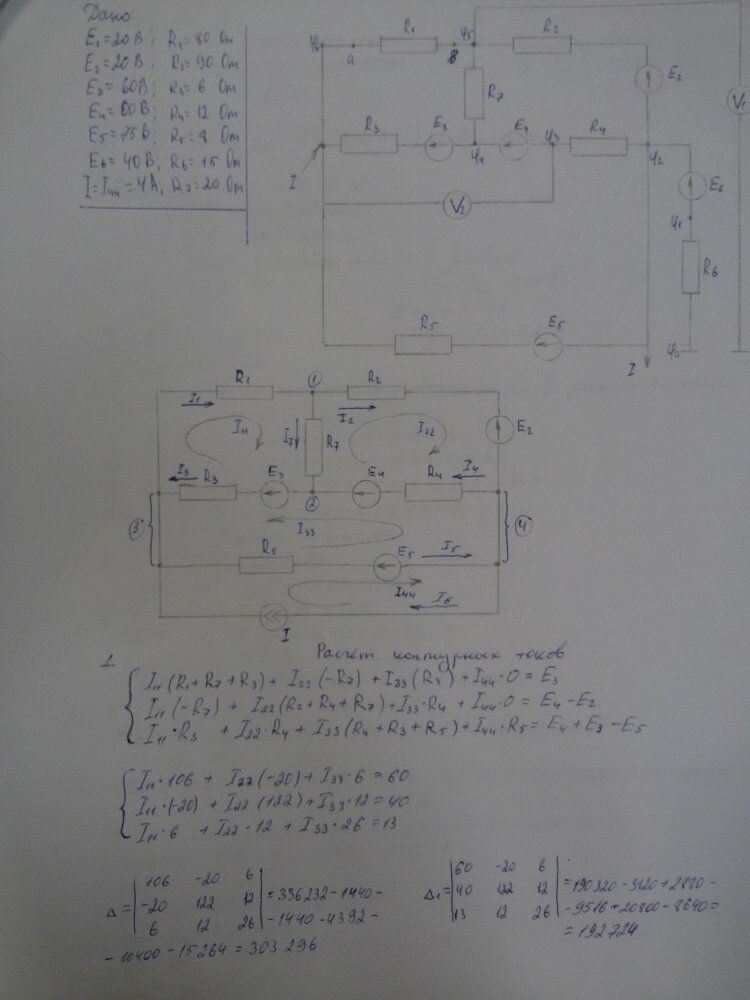 Дано
E₁=20 В; R₁=80 Ом
E₂=20 В; R₂=90 Ом
E₃=60 В; R₃=6 Ом
E₄=60 В; R₄=12 Ом
E₅=75 В; R₅=8 Ом
E₆=40 В; R₆=15 Ом
I=I₄₄=4 А, R₇=20 Ом
φ₆ a R₁ в φ₅ R₂
R₇ E₂ V₁
R₃ E₃ φ₄ E₄ φ₃ R₄ φ₂
I V₂ E₆
φ₁
R₆
R₅ E₅ φ₀
I
R₁ ① R₂
I₁ I₂
I₁₁ I₇ R₇ I₂₂ E₂
I₃ R₃ E₃ E₄ R₄ I₄
②
③ I₃₃ ④
R₅ E₅ I₅
I₄₄ I₆
I
1. Расчёт контурных токов
I₁₁(R₁+R₇+R₃)+ I₂₂(-R₇)+I₃₃(R₃)+I₄₄·0=E₃
I₁₁(-R₇) + I₂₂(R₂+R₄+R₇)+I₃₃·R₄ +I₄₄·0= E₄-E₂.
I₁₁·R₃ +I₂₂·R₄ + I₃₃(R₄+R₃+R₅)+I₄₄·R₅= E₄+E₃-E₅
I₁₁·106 + I₂₂(-20)+I₃₃·6=60
I₁₁·(-20) +I₂₂(122)+I₃₃·12=40
I₁₁·6 +I₂₂·12 +I₃₃·26=13
Δ= | 106 -20 6 |
| -20 122 12 |
| 6 12 26 | =336232-1440-
-1440-4392-
-10400-15264=303296
Δ₁= | 60 -20 6 |
| 40 122 12 |
| 13 12 26 | =190320-3120+2880-
-9516+20800-8640=
=192724.